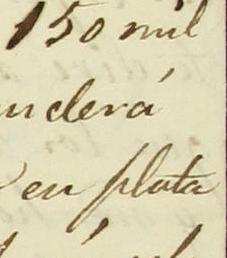 150 mil
nderá
en plata